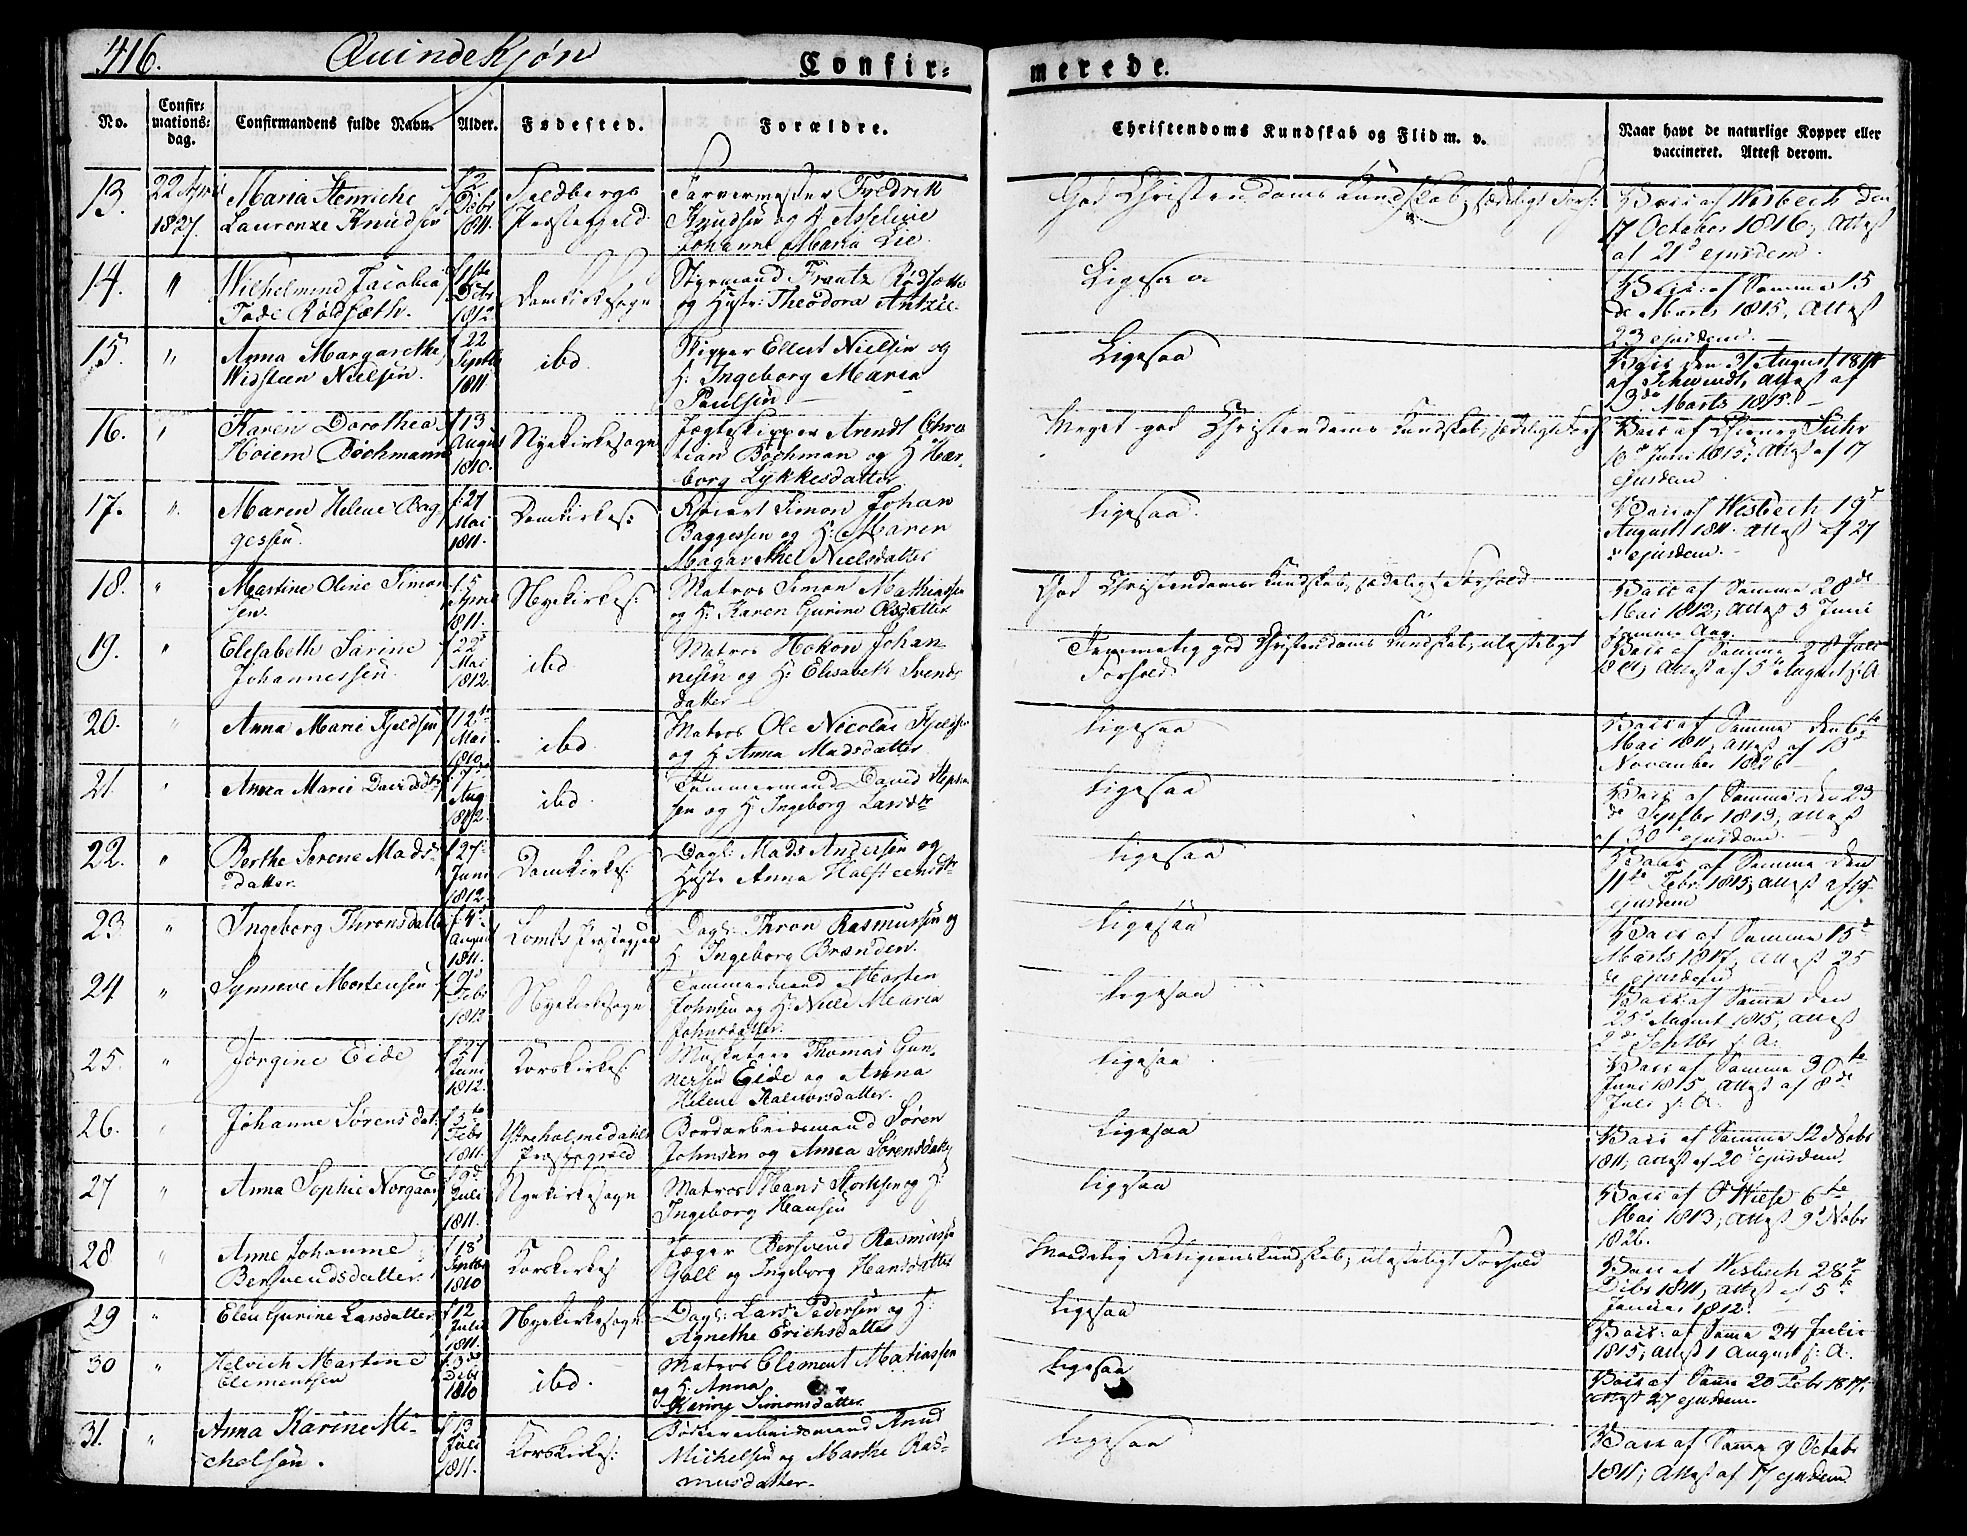 416.
Quindekjøn
Confir-
merede.
No.
Confir-
mations-
dag.
Confirmandens fulde Navn.
Alder.
Fødested.
Forældre.
Christendoms Kundskab og Flid m. v.
Naar havt de naturlige Kopper eller
vaccineret. Attest derom.
13.
22 April
1827.
Maria Henriche
Lauronze Knudsen
f 2
Debr
1811.
Præstegjeld.
Farvermester
Knudsen og H. Asseline
Johanne Maria Lie.
God Christendoms Kundskab, sædeligt Forh:
Vacc: af Wesbech den
17 October 1816, Attest
af 21d ejusdem.
14.
"
Wilhelmine Jacobia
Tode Rødsæth.
1812.
Domkirkesogn
Styrmand Frantz Rødsæth
og Hustr: Theodora Antzée.
Ligesaa
Vacc: af Samme 15
de Marts 1815, Attest
23 ejusdem.
15.
"
Anna Margarethe
Widsteen Nielsen.
f 22
Septbr
1811.
ibd.
Skipper Ellert Nielsen og
H: Ingeborg Maria
Paulsen
Ligesaa
Vacc: den 31 August 1811
af Schwindt, Attest af
13de Marts 1815.
16.
"
Karen Dorothea
Hoiem Bochmann
f 13
August
1810.
Nyekirkesogn
Jægteskipper Arendt Chris
tian Bochman og H Hær-
borg Lykkesdatter
Meget god Christendoms Kundskab, sædeligt Forh
Vacc af Suhr
10d Juni 1815, Attest af 17
ejusdem
17.
"
Maren Helene Bag
gessen.
f: 27
Mai
1811.
Domkirkes:
Simon Johan
Baggessen og H: Maren
Magarethe Nielsdatter
Ligesaa.
Vacc af Wesbech 19d
August 1811. Attest af 27
ejusdem.
18.
"
Martine Oline Simon
sen.
f 5
April
1811.
Nyekirkes:
Matros Simon Mathiassen
og H: Karen Gurine Olsdatter
God Christendoms Kundskab, sædeligt Forhold
Vacc af Samme 28de
Mai 1812, Attest 5 Juni
samme Aar.
19.
"
Elisabeth Sarine
Johannessen.
f 22d
Mai
1812.
ibd.
Matros Hokon Johan
nesen og H: Elisabeth Svends
datter
Temmelig god Christendoms Kundskab, ulasteligt
Forhold
Vacc af Samme 28 Juli
Attest af 5d August s: A
20.
"
Anna Marie Kjeldsen
f 12te
Mai
1810.
ibd.
Matros Ole Nicolai Kjeldsen
og H Anna Madsdatter.
Ligesaa
Vacc af Samme den 6te
Mai 1811, Attest af 13de
November 1826
21.
"
Anna Marie Davidsdtr
f. 7d
Aug
1812.
ibd.
Tømmermand David
sen og H Ingeborg Larsdtr
Ligesaa
Vacc af Samme den 23
de Septbr 1813, Attest
af 30d ejusdem
22.
"
Berthe Serene Mads
datter.
f 27
Juni
1812.
Domkirkes:
Dagl: Mads Andersen og
Hust: Anna Halsteensdtr
Ligesaa
Vacc af Samme den
11te Febr. 1815, Attest af 19d
ejusdem
23
"
Ingeborg Thronsdatter
f. 4d
August
1811.
Loms Præstegjeld
Dagl: Thron Rasmussen og
H Ingeborg Brænden.
Ligesaa
Vacc af Samme 15d
Marts 1817, Attest 25
de ejusdem
24
"
Synneve Mortensen
f. 9d
Febr
1813
Nyekirkesogn
Tømmermand Morten
Johnsen og H: Nille Maria
Johnsdatter.
Ligesaa
Vacc af Samme den
25d August 1815, Attest
2d Septbr s: A:
25.
"
Jorgine Eide
f 27
Juni
1812.
Korskirkes:
Musketeer Thomas Gun-
nersen Eide og Anna
Helene Halvorsdatter.
Ligesaa
Vacc af Samme 30te
Juni 1815, Attest af 8de
Juli s: A.
26.
Johanne Sørensdat:
f 5te
Febr
1811.
Ytreholmedahls
Præstegjeld
Bordarbeidsmand Søren
Johnsen og Anna Sørensdatter
Ligesaa
Vacc af Samme 12 Novbr
1811, Attest af 20d ejusdem.
27
"
Anna Sophie Norgaard
f 9d
Juli
1811.
Nyekirkesogn
Matros Hans og H
Ingeborg Hansen
Ligesaa
Vacc af Wiese 6te
Mai 1813, Attest 9d Novbr
1826.
28
"
Anne Johanne
Bersvendsdatter.
f 18d
Septbr
1810
Korskirkes
Jæger Bersvend Rasmussen
Gall og Ingeborg Hansdatter
Maadelig Religionskundskab, ulasteligt Forhold
Vacc af Wesbech 28d
Debr 1811, Attest af 5te
Januar 1812.
29
"
Elen Gurine Larsdatter.
f 12
Juli
1811.
Nyekirkesogn
Dagl: Lars Pedersen og H:
Agnethe Erichsdatter
Ligesaa
Vacc: af Samme 24 Julii
1815, Attest 1 August s: A.
30
"
Helvich Martine
Clementsen
1810
ibd.
Matros Clement Matiassen
og H: Anna
Karine Simonsdatter.
Ligesaa
Vacc af Samme 20 Febr 1811,
Attest 27 ejusdem.
31.
"
Anna Karine Mi-
chelsen.
f 13
Juli
1811.
Korskirkes:
Knud
Michelsen og Marthe Ras-
musdatter.
Ligesaa
Vacc af Samme 9 Octobr
1811, Attest af 17 ejusdem